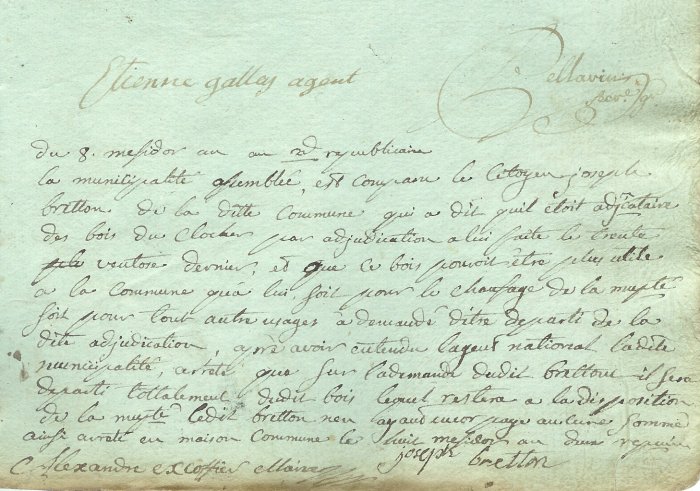 Etienne gallay agent
du 8. mesidor an an 2d republicaine
la municipalité assemblée, est comparu le Citoyen joseph
bretton de la ditte Commune qui a dit quil étoit adjcataire
des bois du Clocher par adjudication a lui faite le trente
ventose dernier, et que ce bois pouvoit être plus utile
a la Commune qua lui soit pour le chaufage de la mupté
soit pour tout autre usages a demandé ditre departi de la
dite adjudication, apre avoir entendu lagent national ladite
municipalité, arrete que sur la demande dudit brettont il sera
departi tottalement dudit bois lequel restera a la disposition
de la mupté ledit bretton nen ayant encor payé aucune somme
ausi arreté en maison Commune le huit mesidor an deux
joseph bretton
Alexandre excoffier Maire